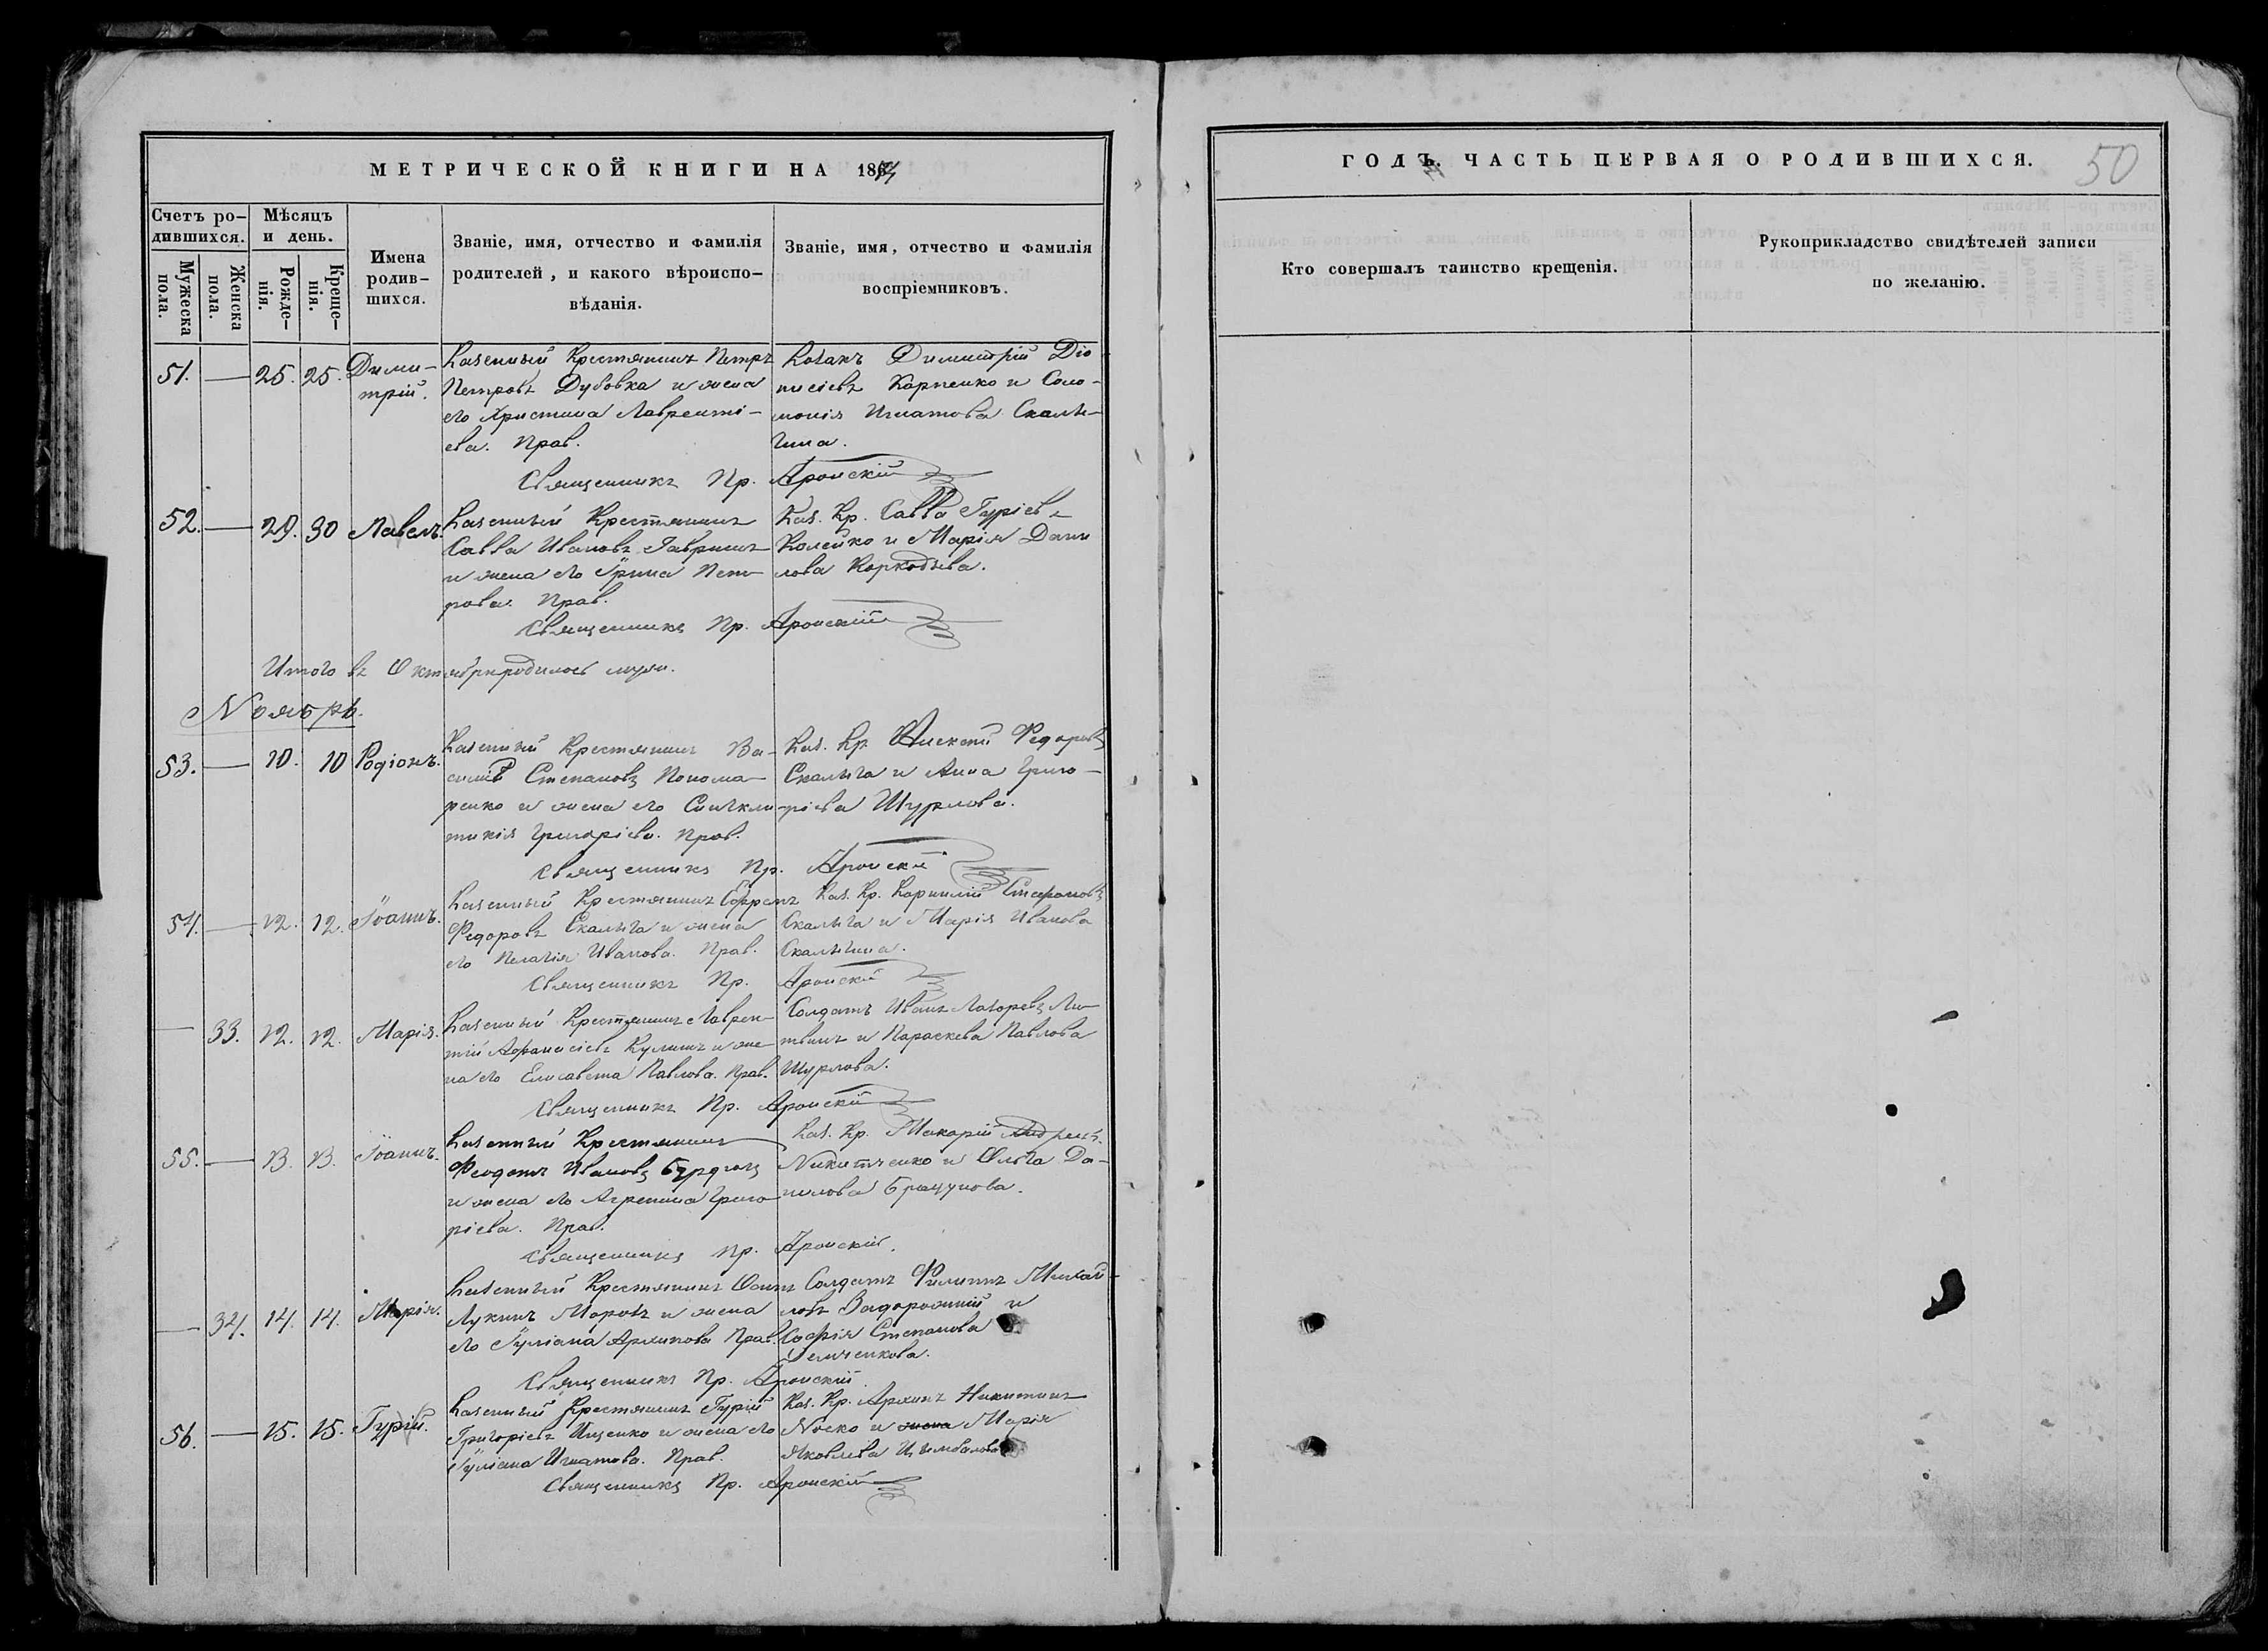 МЕТРИЧЕСКОЙ КНИГИ НА 186
Счетъ ро-
дившихся.
Мѣсяцъ
и день.
Мужеска
пола.
Женска
пола.
Рожде-
нія.
Креще-
нія.
Имена
родив-
шихся.
Званіе, имя, отчество и фамилія
родителей, и какого вѣроиспо-
вѣданія.
Званіе, имя, отчество и фамилія
воспріемниковъ.
51. — 25. 25. Дими-
трій.
Казенный Крестянинъ Петръ
Петровъ Дубовка и жена
его Христина Лавренті-
ева. Прав.
Козакъ Димитрій Діо
нисіевъ Карпенко и Соло-
монія Игнатова Скалы-
гина.
Священникъ Пр. Аронскій
52. — 29. 30 Павелъ.
Казенный Крестянинъ
Савва Ивановъ Гавришъ
и жена его Ірина Пет-
рова. Прав.
Каз. Кр. Савва Гуріевъ
Колейко и Марія Дани
лова
Священникъ Пр. Аронскій
Итого въ Октябрѣ родилось
Ноябрь.
53. — 10. 10 Родіонъ.
Казенный Крестянинъ Ва-
силій Степановъ Понома-
ренко и жена его Сингкли-
тикія Григоріева. Прав.
Каз. Кр. Алексій Федоровъ
Скалыга и Анна Григо-
ріева Шурлова.
Священникъ Пр. Аронскій
54. — 12. 12. Іоаннъ.
Казенный Крестянинъ Ефремъ
Федоровъ Скалыга и жена
его Пелагія Иванова. Прав.
Каз. Кр. Корнилій Стефановъ
Скалыга и Марія Иванова
Скалыгина.
Священникъ Пр. Аронскій
— 33. 12. 12. Марія.
Казенный Крестянинъ Лаврен-
тій Афанасіевъ Кулишъ и же-
на его Елисавета Павлова. Прав.
Солдатъ Иванъ Лазоревъ Ли-
твинъ и Параскева Павлова
Шурлова.
Священникъ Пр. Аронскій
55. — 13. 13. Іоаннъ.
Казенный Крестянинъ
Феодотъ Ивановъ
и жена его Агрепина Григо
ріева. Прав.
Каз. Кр. Макарій Андреевъ
Никитченко и Ольга Да-
нилова
Священникъ Пр. Аронскій.
— 34. 14. 14. Марія.
Казенный Крестянинъ Фома
Лукинъ Морозъ и жена
его Іуліана Архипова Прав.
Солдатъ Филиппъ Михай-
ловъ Задорожній и
Софія Степанова
Демченкова.
Священникъ Пр. Аронскій
56. — 15. 15. Гурій.
Казенный Крестянинъ Гурій
Григоріевъ Ищенко и жена его
Іуліана Игнатова. Прав.
Каз. Кр. Архипъ Никитинъ
Носко и жена Марія
Яковлева Цымбалова
Священникъ Пр. Аронскій
ГОДЪ. ЧАСТЬ ПЕРВАЯ О РОДИВШИХСЯ.
50
Кто совершалъ таинство крещенія.
Рукоприкладство свидѣтелей записи
по желанію.